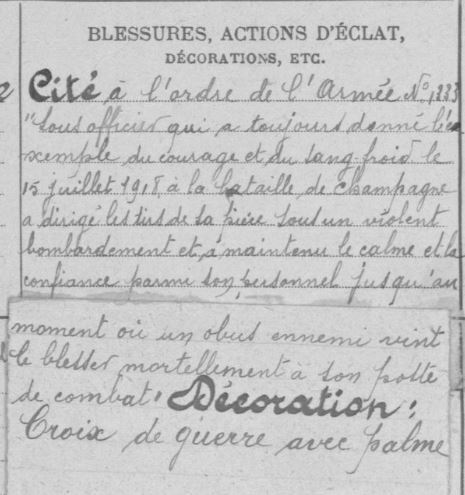 BLESSURES, ACTIONS D'ÉCLAT,
DÉCORATIONS, ETC.
Cité à l'ordre de l'Armée No, 1333
"Sous officier qui a toujours donné l'é
xemple du courage et du sang-froid le
15 juillet 1918 à la bataille de Champagne
a dirigé les tirs de sa pièce sous un violent
bombardement et, à maintenu le calme et la
confiance parmi son personnel jusqu'au
moment où un obus ennemi vint
le blesser mortellement à son poste
de combat" Décoration:
Croix de guerre avec palme